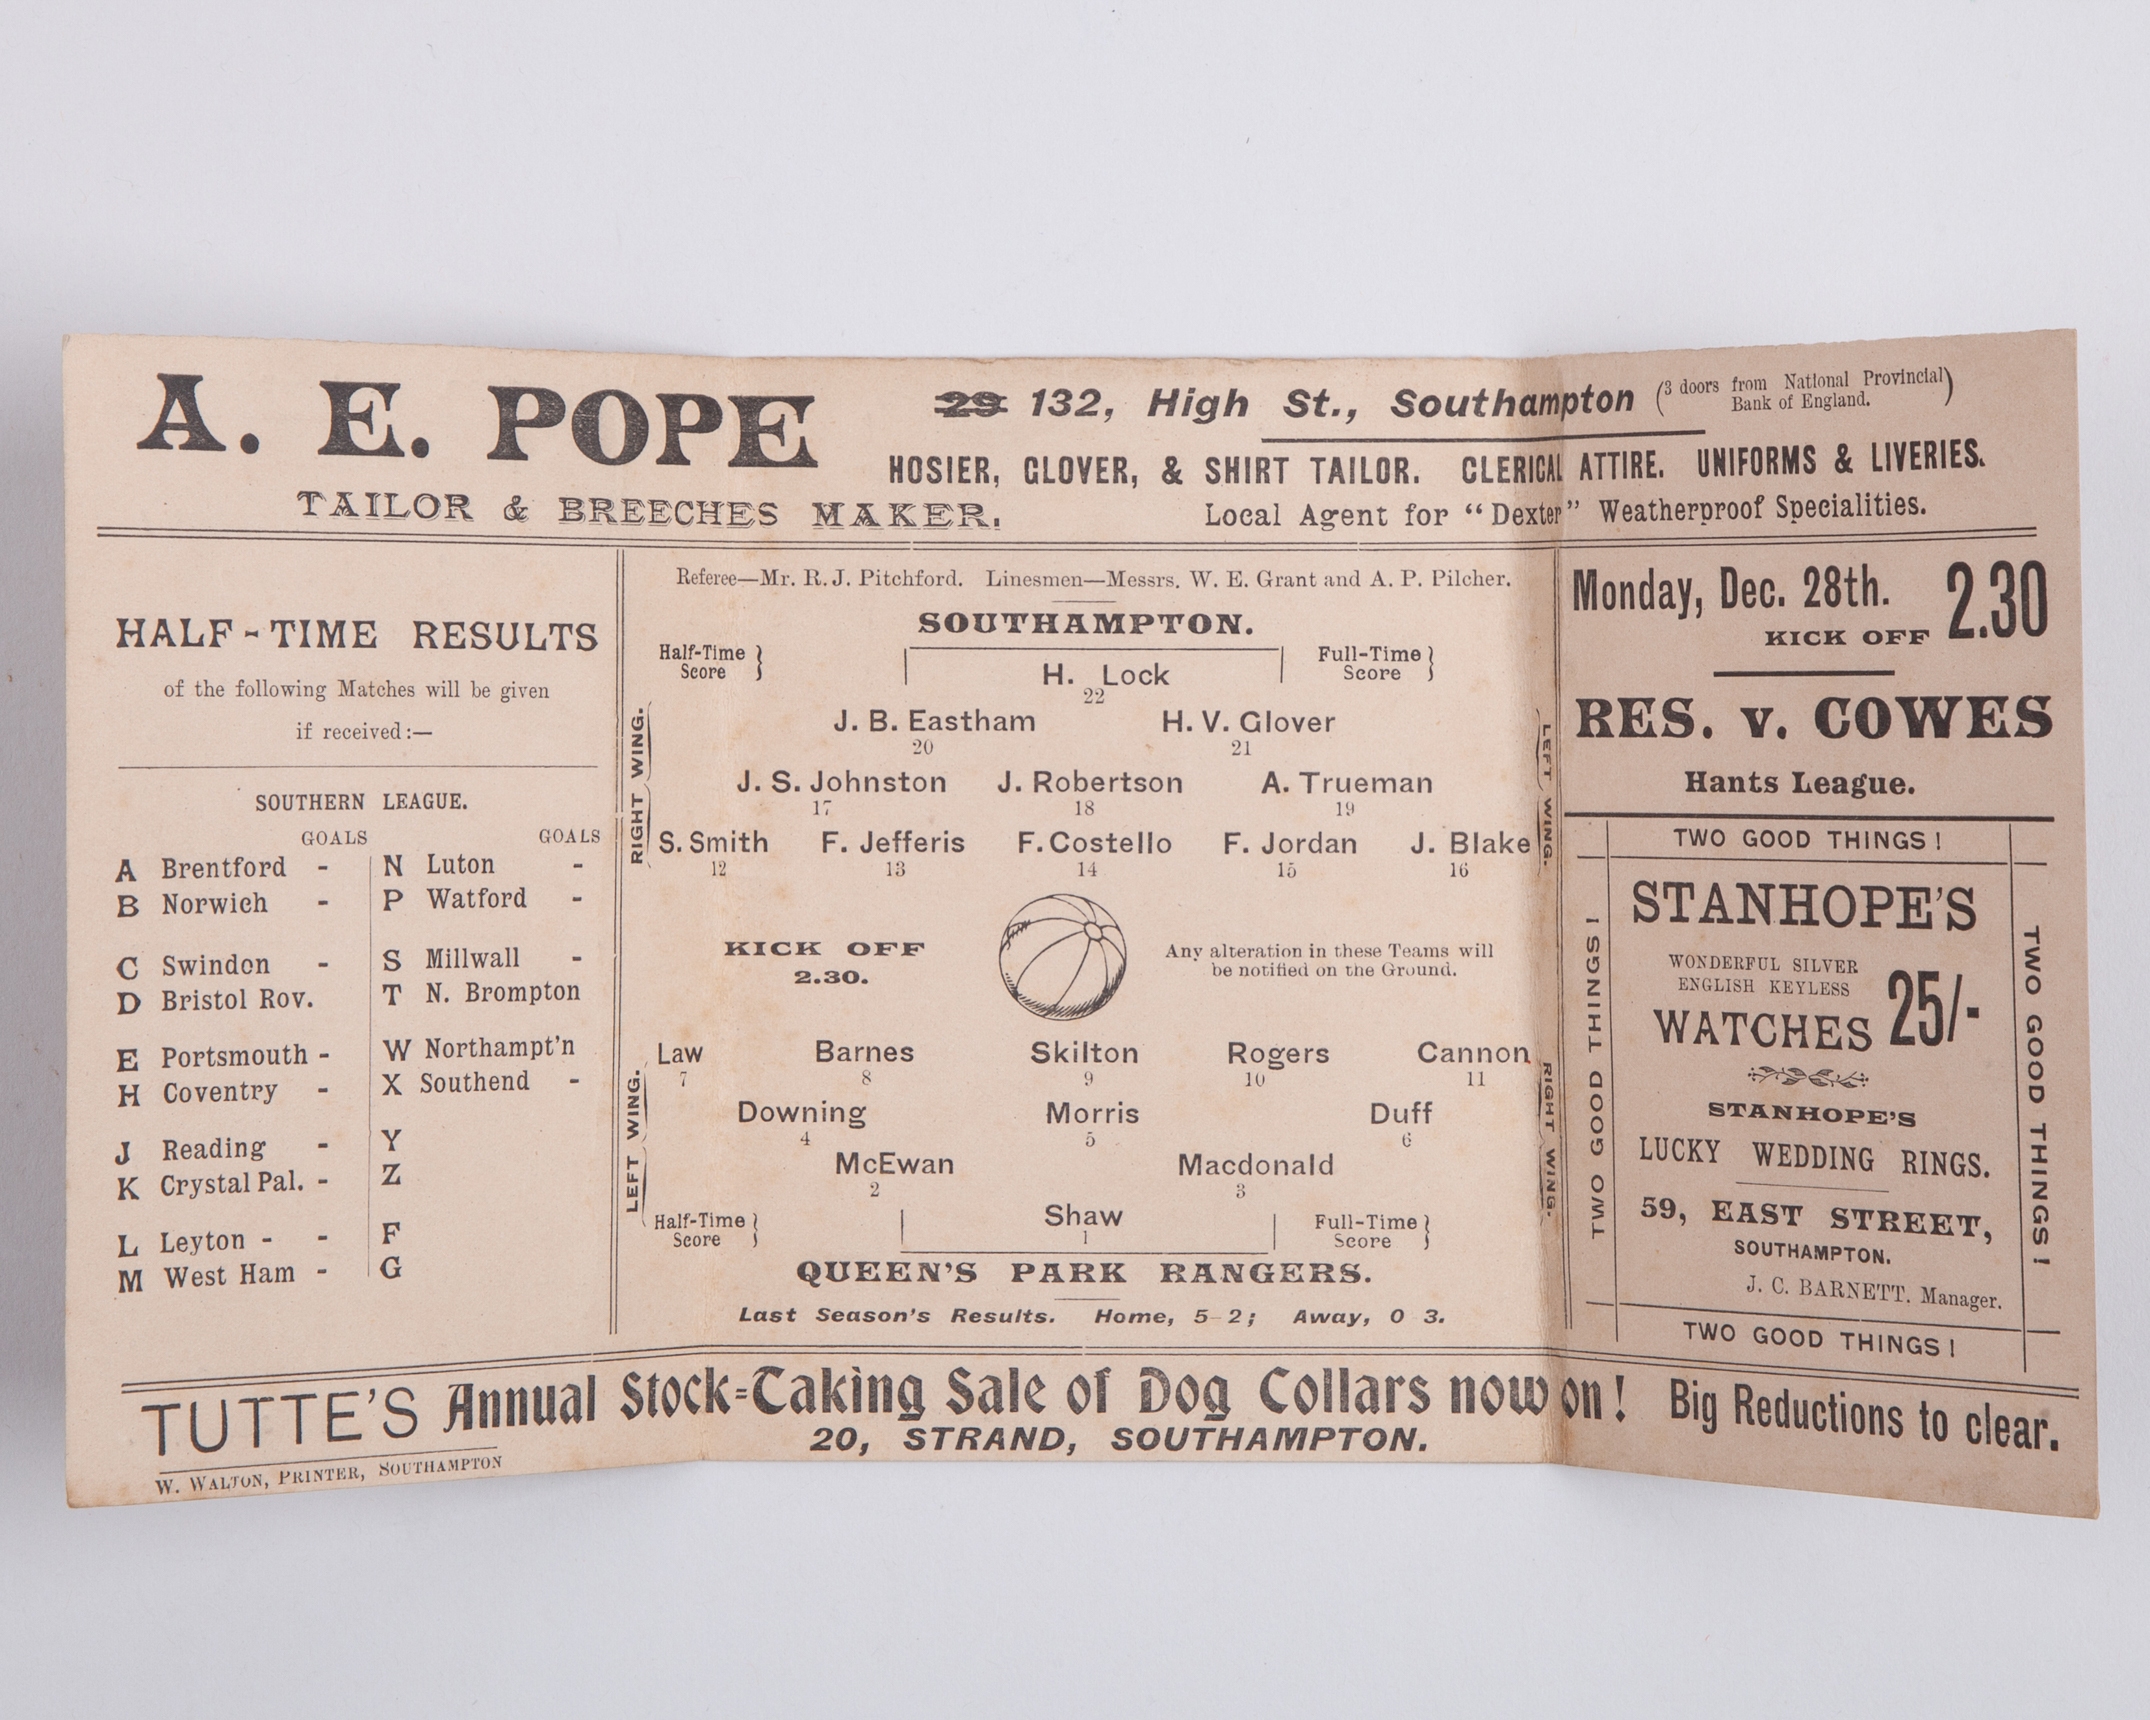 A. E. POPE
TAILOR & BREECHES MAKER.
29 132, High St., Southampton (3 doors from National Provincial Bank of England.)
HOSIER, GLOVER, & SHIRT TAILOR. CLERICAL ATTIRE. UNIFORMS & LIVERIES.
Local Agent for “Dexter” Weatherproof Specialities.
HALF-TIME RESULTS
of the following Matches will be given
if received:—
SOUTHERN LEAGUE.
GOALS GOALS
A Brentford - N Luton -
B Norwich - P Watford -
C Swindon - S Millwall -
D Bristol Rov. T N. Brompton
E Portsmouth - W Northampt'n
H Coventry - X Southend -
J Reading - Y
K Crystal Pal. - Z
L Leyton - - F
M West Ham - G
Referee—Mr. R. J. Pitchford. Linesmen—Messrs. W. E. Grant and A. P. Pilcher.
SOUTHAMPTON.
Half-Time Score } Full-Time Score }
H. Lock
22
J. B. Eastham H. V. Glover
20 21
RIGHT WING. LEFT WING.
J. S. Johnston J. Robertson A. Trueman
17 18 19
S. Smith F. Jefferis F. Costello F. Jordan J. Blake
12 13 14 15 16
KICK OFF
2.30.
Any alteration in these Teams will
be notified on the Ground.
Law Barnes Skilton Rogers Cannon
7 8 9 10 11
LEFT WING. RIGHT WING.
Downing Morris Duff
4 5 6
McEwan Macdonald
2 3
Shaw
1
Half-Time Score } Full-Time Score }
QUEEN'S PARK RANGERS.
Last Season's Results. Home, 5-2; Away, 0 3.
Monday, Dec. 28th.
KICK OFF 2.30
RES. v. COWES
Hants League.
TWO GOOD THINGS!
TWO GOOD THINGS!
TWO GOOD THINGS!
STANHOPE'S
WONDERFUL SILVER
ENGLISH KEYLESS
WATCHES 25/-
STANHOPE'S
LUCKY WEDDING RINGS.
59, EAST STREET,
SOUTHAMPTON.
J. C. BARNETT. Manager.
TWO GOOD THINGS!
TUTTE'S Annual Stock-Taking Sale of Dog Collars now on! Big Reductions to clear.
20, STRAND, SOUTHAMPTON.
W. WALTON, PRINTER, SOUTHAMPTON